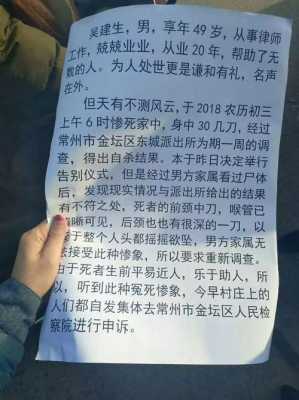 吴建生，男，享年 49 岁，从事律师
工作，兢兢业业，从业 20 年，帮助了无
数的人。为人处世更是谦和有礼，名声
在外。
但天有不测风云，于 2018 农历初三
上午 6 时惨死家中，身中 30 几刀，经过
常州市金坛区东城派出所为期一周的调
查，得出自杀结果。本于昨日决定举行
告别仪式，但是经过男方家属看过尸体
后，发现现实情况与派出所给出的结果
有不符之处，死者的前颈中刀，喉管已
清晰可见，后颈也也有很深的一刀，以
于整个人头都摇摇欲坠，男方家属无
法接受此种惨象，所以要求重新调查。
由于死者生前平易近人，乐于助人，所
以，听到此种冤死惨象，今早村庄上的
人们都自发集体去常州市金坛区人民检
察院进行申诉。